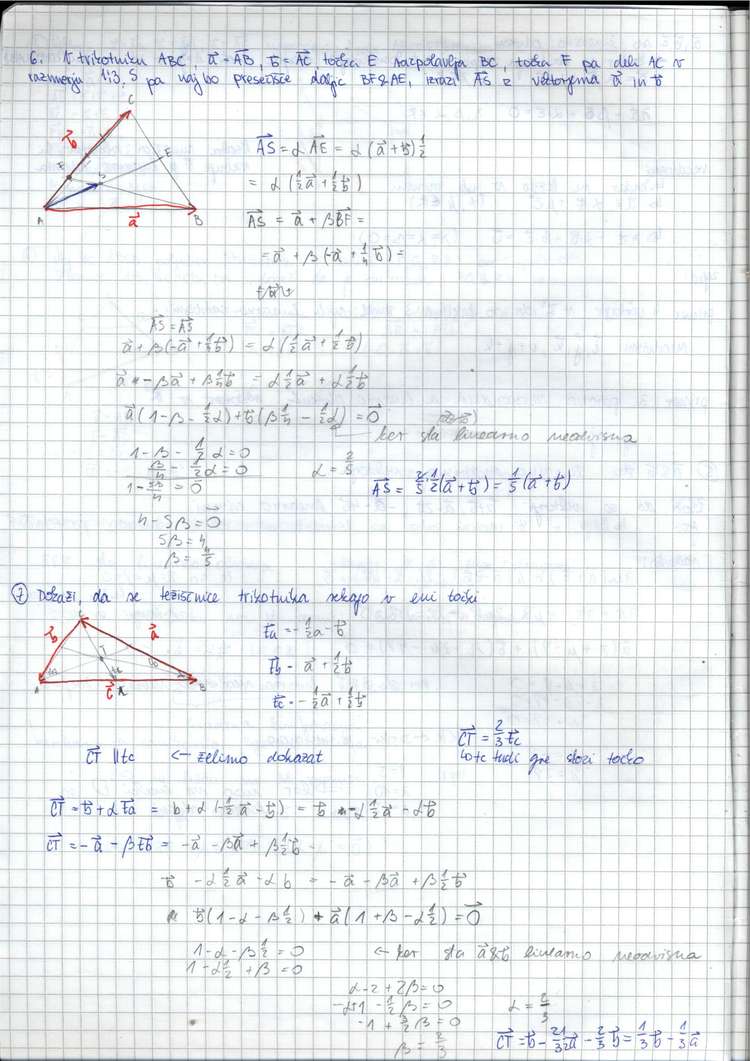 6. V trikotniku ABC, a⃗ = AB⃗, b⃗ = AC⃗, točka E razpolavlja BC, točka F pa deli AC v
razmerju 1:3. S pa naj bo presečišče daljic BF & AE, izrazi AS⃗ z vektorjema a⃗ in b⃗
C
b⃗
F
S
E
A
a⃗
B
AS⃗ = α AE⃗ = α (a⃗ + b⃗) 1/2
= α (1/2 a⃗ + 1/2 b⃗)
AS⃗ = a⃗ + β BF⃗ =
= a⃗ + β (-a⃗ + 1/4 b⃗) =
AS⃗ = AS⃗
a⃗ + β (-a⃗ + 1/4 b⃗) = α (1/2 a⃗ + 1/2 b⃗)
a⃗ - β a⃗ + β 1/4 b⃗ = α 1/2 a⃗ + α 1/2 b⃗
a⃗ (1 - β - 1/2 α) + b⃗ (β 1/4 - 1/2 α) = 0⃗
ker sta linearno neodvisna
1 - β - 1/2 α = 0
β/4 - 1/2 α = 0
1 - 5β/4 = 0
α = 2/5
AS⃗ = 2/5 · 1/2 (a⃗ + b⃗) = 1/5 (a⃗ + b⃗)
4 - 5β = 0
5β = 4
β = 4/5
7 Dokaži, da se težiščnice trikotnika sekajo v eni točki
C
b⃗
a⃗
T
tc
A
c⃗
B
ta⃗ = -1/2 a - b⃗
tb⃗ = a⃗ + 1/2 b⃗
tc⃗ = -1/2 a⃗ + 1/2 b⃗
CT⃗ || tc ← želimo dokazat
CT⃗ = 2/3 tc⃗
↳ tc tudi gre skozi točko
CT⃗ = b⃗ + α ta⃗ = b + α (-1/2 a⃗ - b⃗) = b⃗ - α 1/2 a⃗ - α b⃗
CT⃗ = -a⃗ - β tb⃗ = -a⃗ - β a⃗ + β 1/2 b⃗
b⃗ - α 1/2 a⃗ - α b = -a⃗ - β a⃗ + β 1/2 b⃗
b⃗ (1 - α - β 1/2) + a⃗ (1 + β - α 1/2) = 0⃗
1 - α - β 1/2 = 0
← ker sta a⃗ & b⃗ linearno neodvisna
1 - α 1/2 + β = 0
α - 2 + 2β = 0
-1 + 3/2 β = 0
β = 2/3
α = 2/3
CT⃗ = b⃗ - 2/3 1/2 a⃗ - 2/3 b⃗ = 1/3 b⃗ - 1/3 a⃗